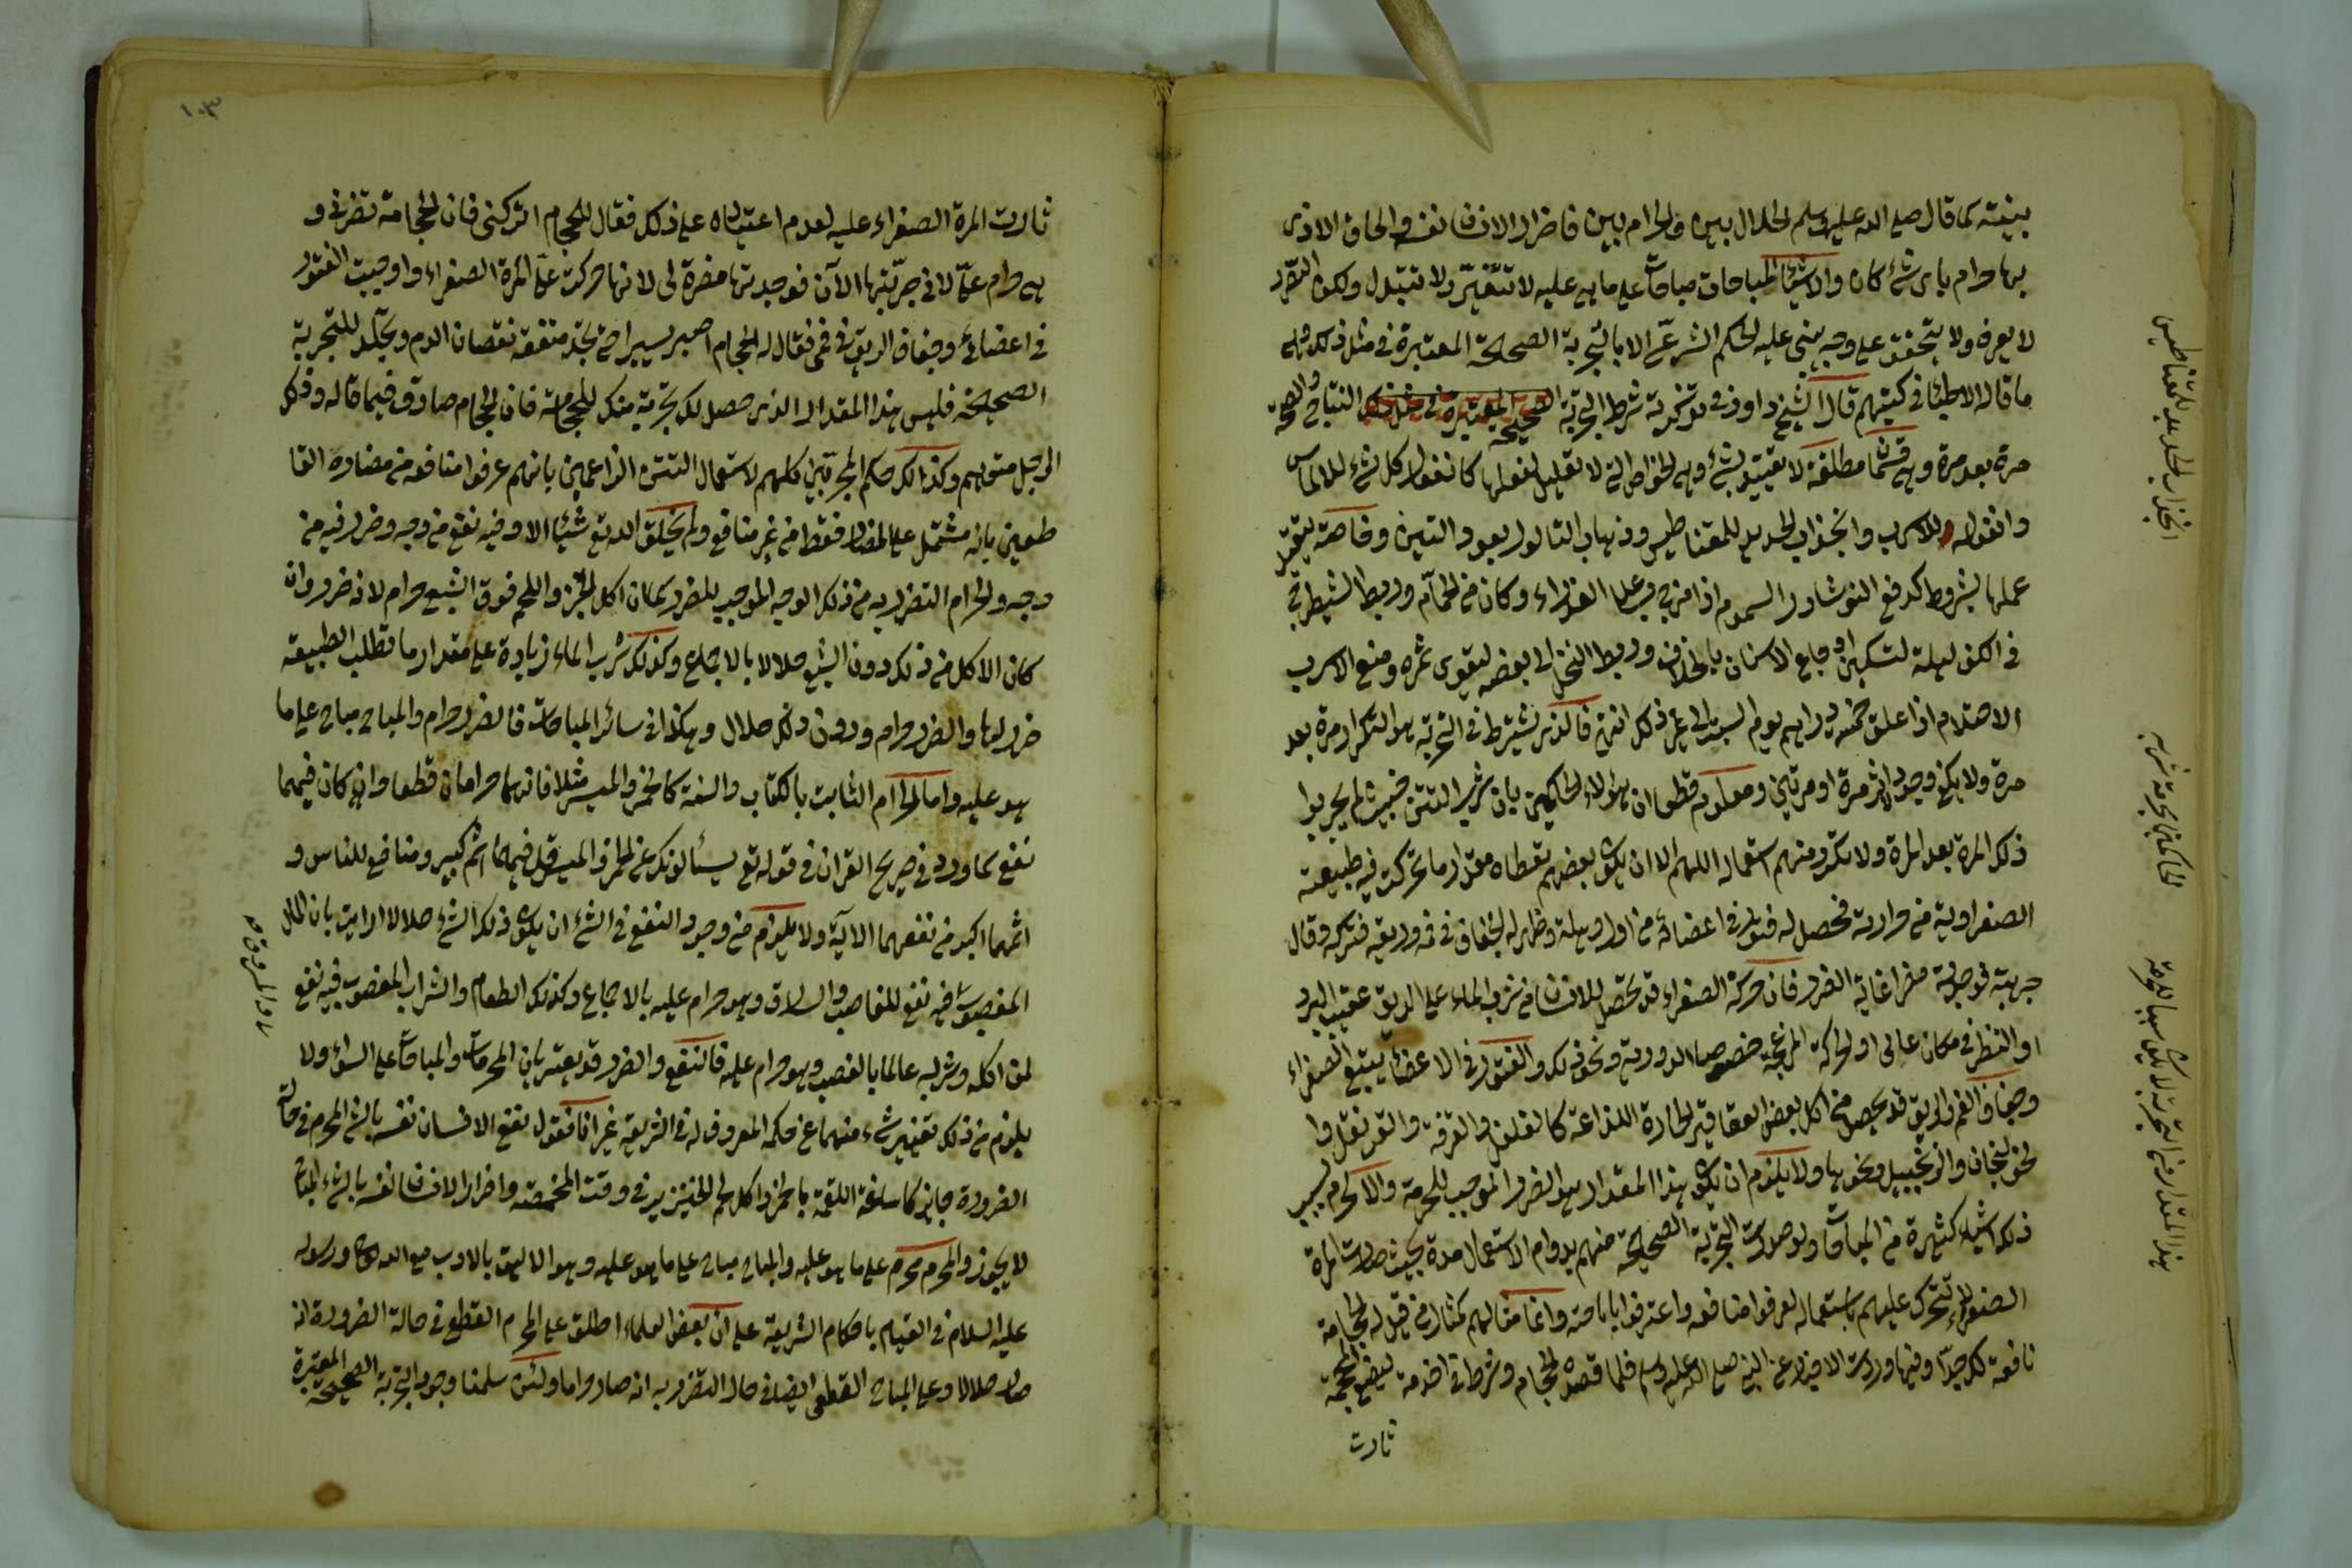 بينته كما قال صلى الله عليه وسلم الحلال بين والحرام بين فاضرار الانسان نفسه والحاق الاذى
بها حرام باى شئ كان والاشياء المباحات مباحات على ما هى عليه لا تتغير ولا تتبدل ولكن التضرر
لا يعرف ولا يتحقق على وجه يبنى عليه الحكم الشرعى الا بالتجربة الصحيحة المعتبرة فى مثل ذلك وهى
ما قاله الاطباء فى كتبهم قال الشيخ داود فى تذكرته شرط التجربة الصحيحة
مرة بعد مرة وهى قسمان مطلقة لا تقييد بشئ وهى الخواص التى لا تعليل لفعلها كانفعال كل شئ للالماس
وانفعاله للاسرب وانجذاب الحديد للمغناطيس وذهاب الثالول بعود التين وخاصة يتقيد
عملها بشروط كدفع النوشادر السموم اذا مزج على الغذاء وكان من الحمام وربط الشيطرج
فى الكف ليلة لتسكين اوجاع الاسنان بالخلاف وربط النخل الى بعضه ليقوى ثمره ومنع الاسرب
الاحتلام اذا علق خمسة دراهم يوم السبت الى غير ذلك انتهى فالذى يشترط فى التجربة هو التكرار مرة بعد
مرة ولا يكفى وجود الاثر مرة او مرتين ومعلوم قطعا ان هؤلاء الحاكمين بان شرب التتن خبيث لم يجربوا
ذلك المرة بعد المرة ولا تكرر منهم استعماله اللهم الا ان يكون بعضهم تعطاه مقدار ما تحركت فيه طبيعته
الصفراوية من حرارته فحصل له فتور فى اعضائه من اول وهلة وظهر له الجفاف فى فمه وريقه فتركه وقال
جربته فوجدته مضرا غاية الضرر فان حركة الصفراء قد تحصل للانسان من شرب الماء على الريق عقيب البرد
او النظر فى مكان عالى او الحركة المزعجة خصوصا الدورية ونحو ذلك والفتور فى الاعضاء يتبع الصفراء
وجفاف الفم والريق قد يحصل من اكل بعض العقاقير الحارة اللذاعة كالفلفل والقرفة والقرنفل وا
لخولنجان والزنجبيل ونحوها ولا يلزم ان يكون هذا المقدار هو الضرر الموجب للحرمة والا لحرم بسبب
ذلك اشياء كثيرة من المباحات ولو صدرت التجربة الصحيحة منهم بدوام الاستعمال مدة بحيث صارت المرة
الصفراء لا تتحرك عليهم باستعماله لعرفوا منافعه واعترفوا باباحته وانما مثالهم كمثال من قيل له الحجامة
نافعة لك جدا وفيها وردت الاخبار عن النبى صلى الله عليه وسلم فلما قصد الحجام وشرط قى اخدمه ليضع المحجمة
ثارت
انجذاب الحديد للمغناطيس
الحاكمين بحرمة شربه
هذا المقدار من التجربة لا يكون سببا للحرمة
١٠٣
ثارت المرة الصفراء عليه لعدم اعتياده على ذلك فقال للحجام اتركنى فان الحجامة تضرنى و
هى حرام على لانى جربتها الآن فوجدتها مضرة لى لانها حركت على المرة الصفراء واوجبت الفتور
فى اعضائى وجفاف الريق فى فمى فقال له الحجام اصبر يسيرا حتى تجد منفعة نقصان الدم وتكمل للتجربة
الصحيحة فليس هذا المقدار الذى حصل لك تجربة منك للحجامة فان الحجام صادق فيما قاله وذلك
الرجل متوهم وكذلك حكم المجربين كلهم لاستعمال التتن الزاعمين بانهم عرفوا منافعه من مضاره القا
طعين بانه مشتمل على المضار فقط من غير منافع ولم يخلق الله تع شيئا الا وفيه نفع من وجه وضرر فيه من
وجه والحرام التضرر به من ذلك الوجه الموجب للضرر كما ان اكل الخبز واللحم فوق الشبع حرام لانه ضرر وان
كان الاكل من ذلك دون الشبع حلالا بالاجماع وكذلك شرب الماء زيادة على مقدار ما تطلب الطبيعة
ضرر لها والضرر حرام ودون ذلك حلال وهكذا فى سائر المباحات فالضرر حرام والمباح مباح على ما
هو عليه واما الحرام الثابت بالكتاب والسنة كالخمر والميسر مثلا فانهما حرامان قطعا وان كان فيهما
نفع كما ورد فى صريح القران فى قوله تع يسئالونك عن الخمر والميسر قل فيهما اثم كبير ومنافع للناس و
اثمهما اكبر من نفعهما الآية ولا يلزم من وجود النفع فى الشئ ان يكون ذلك الشئ حلالا ارايت بان المال
المغصوب فيه نفع للغاصب والسارق وهو حرام عليه بالاجماع وكذلك الطعام والشراب المغصوب فيه نفع
لمن اكله وشربه عالما بالغصب وهو حرام عليه فالنفع والضرر قد يعتبر بان المحرمات والمباحات على السواء ولا
يلزم من ذلك تغيير شئ منهما عن حكمه المعروف له فى الشريعة غير انا نقول نفع الانسان نفسه بالشئ المحرم فى حالة
الضرورة جايز كاساغة اللقمة بالخمر واكل لحم الخنزير فى وقت المخمصة واضرار الانسان نفسه بالشئ المباح
لا يجوز والمحرم محرم على ما هو عليه والمباح مباح على ما هو عليه وهو الاليق بالادب مع الله تعالى ورسوله
عليه السلام فى القيام باحكام الشريعة على ان بعض العلماء اطلق على المحرم القطعى فى حالة الضرورة انه
صار حلالا وعلى المباح القطعى ايضا فى حال التضرر به انه صار حراما ولئن سلمنا وجود التجربة الصحيحة المعتبرة